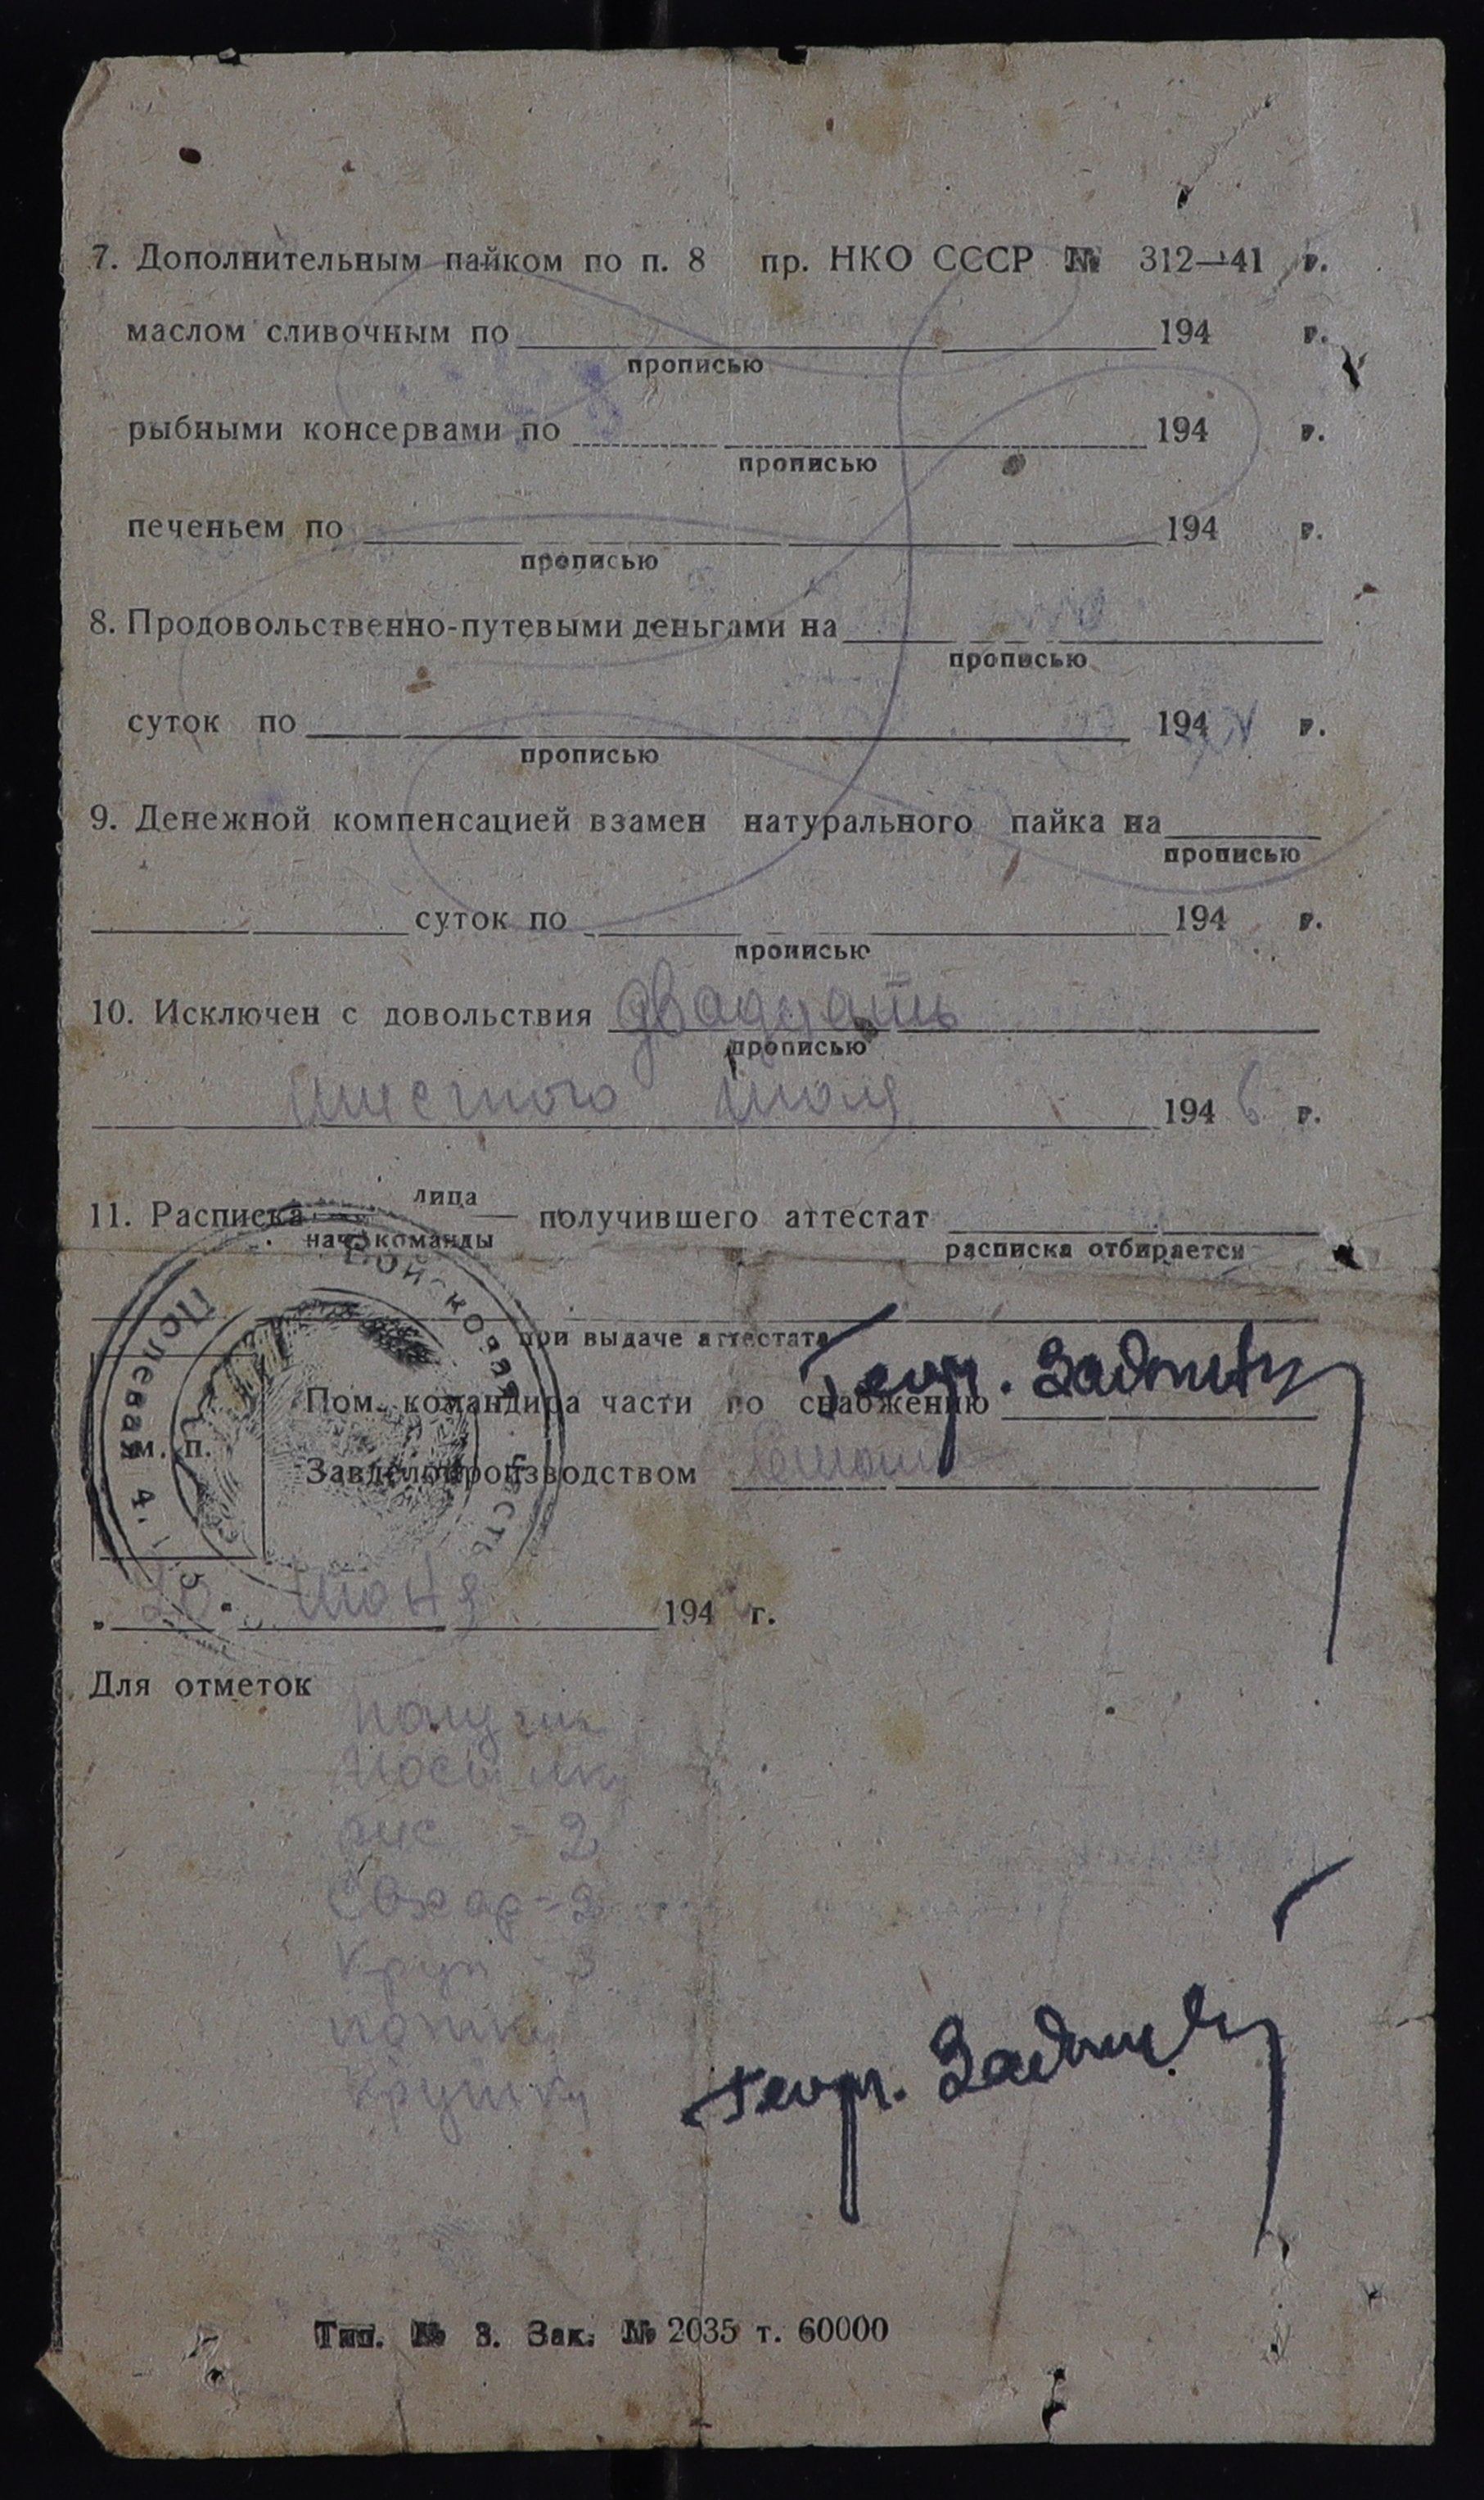 7. Дополнительным пайком по п. 8 пр. НКО СССР № 312—41 г.
маслом сливочным по 194 г.
прописью
рыбными консервами по 194 г.
прописью
печеньем по 194 г.
прописью
8. Продовольственно-путевыми деньгами на
прописью
суток по 194 г.
прописью
9. Денежной компенсацией взамен натурального пайка на
прописью
суток по 194 г.
прописью
10. Исключен с довольствия двадцать
прописью
шестого 1946 г.
11. Расписка лица получившего аттестат
нач. команды расписка отбирается
при выдаче аттестата
Пом. командира части по снабжению Георг.
м. п.
Завделопроизводством
Войсковая часть
Полевая
июня 194 г.
Для отметок
получил
посылку
рис - 2
Сахар - 2
Круп - 3
кружку
Георг.
Тип. № 3. Зак. № 2035 т. 60000